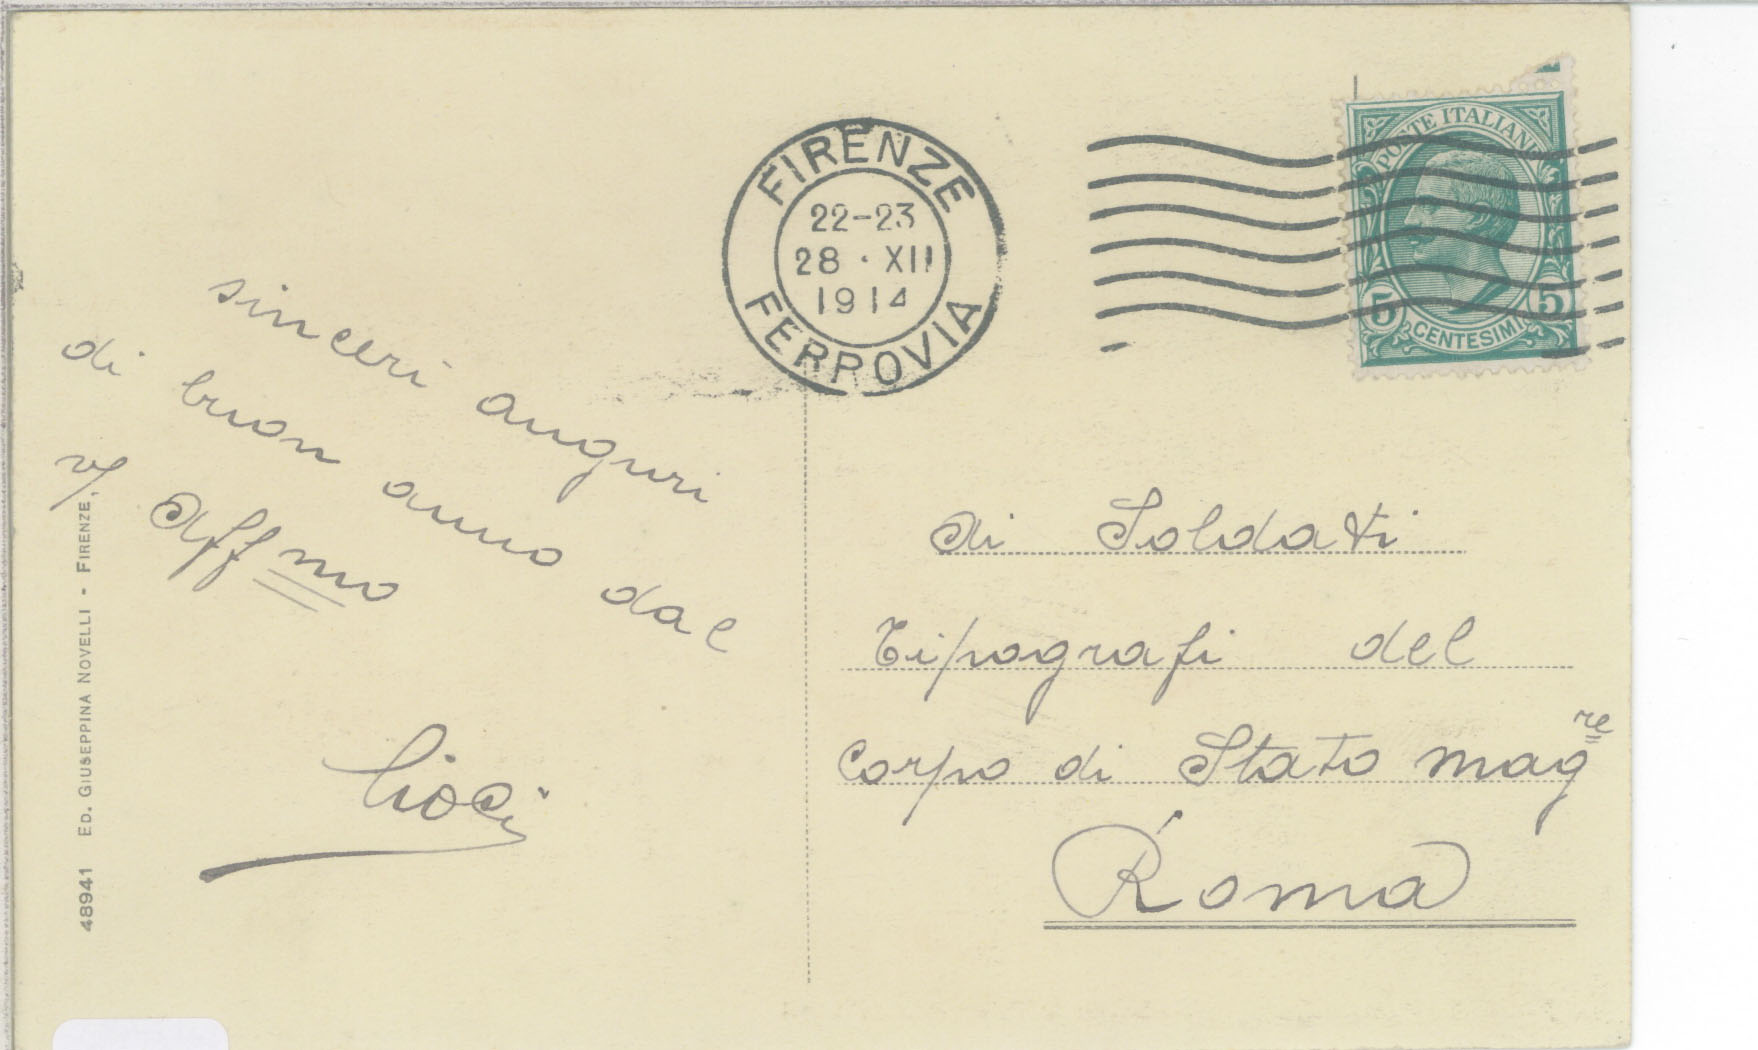 FIRENZE
22-23
28 · XII
1914
FERROVIA
POSTE ITALIANE
5 5
CENTESIMI
sinceri auguri
di buon anno dal
v/ Affmo
Ai Soldati
Tipografi del
Corpo di Stato Magre
Roma
48941 ED. GIUSEPPINA NOVELLI - FIRENZE.